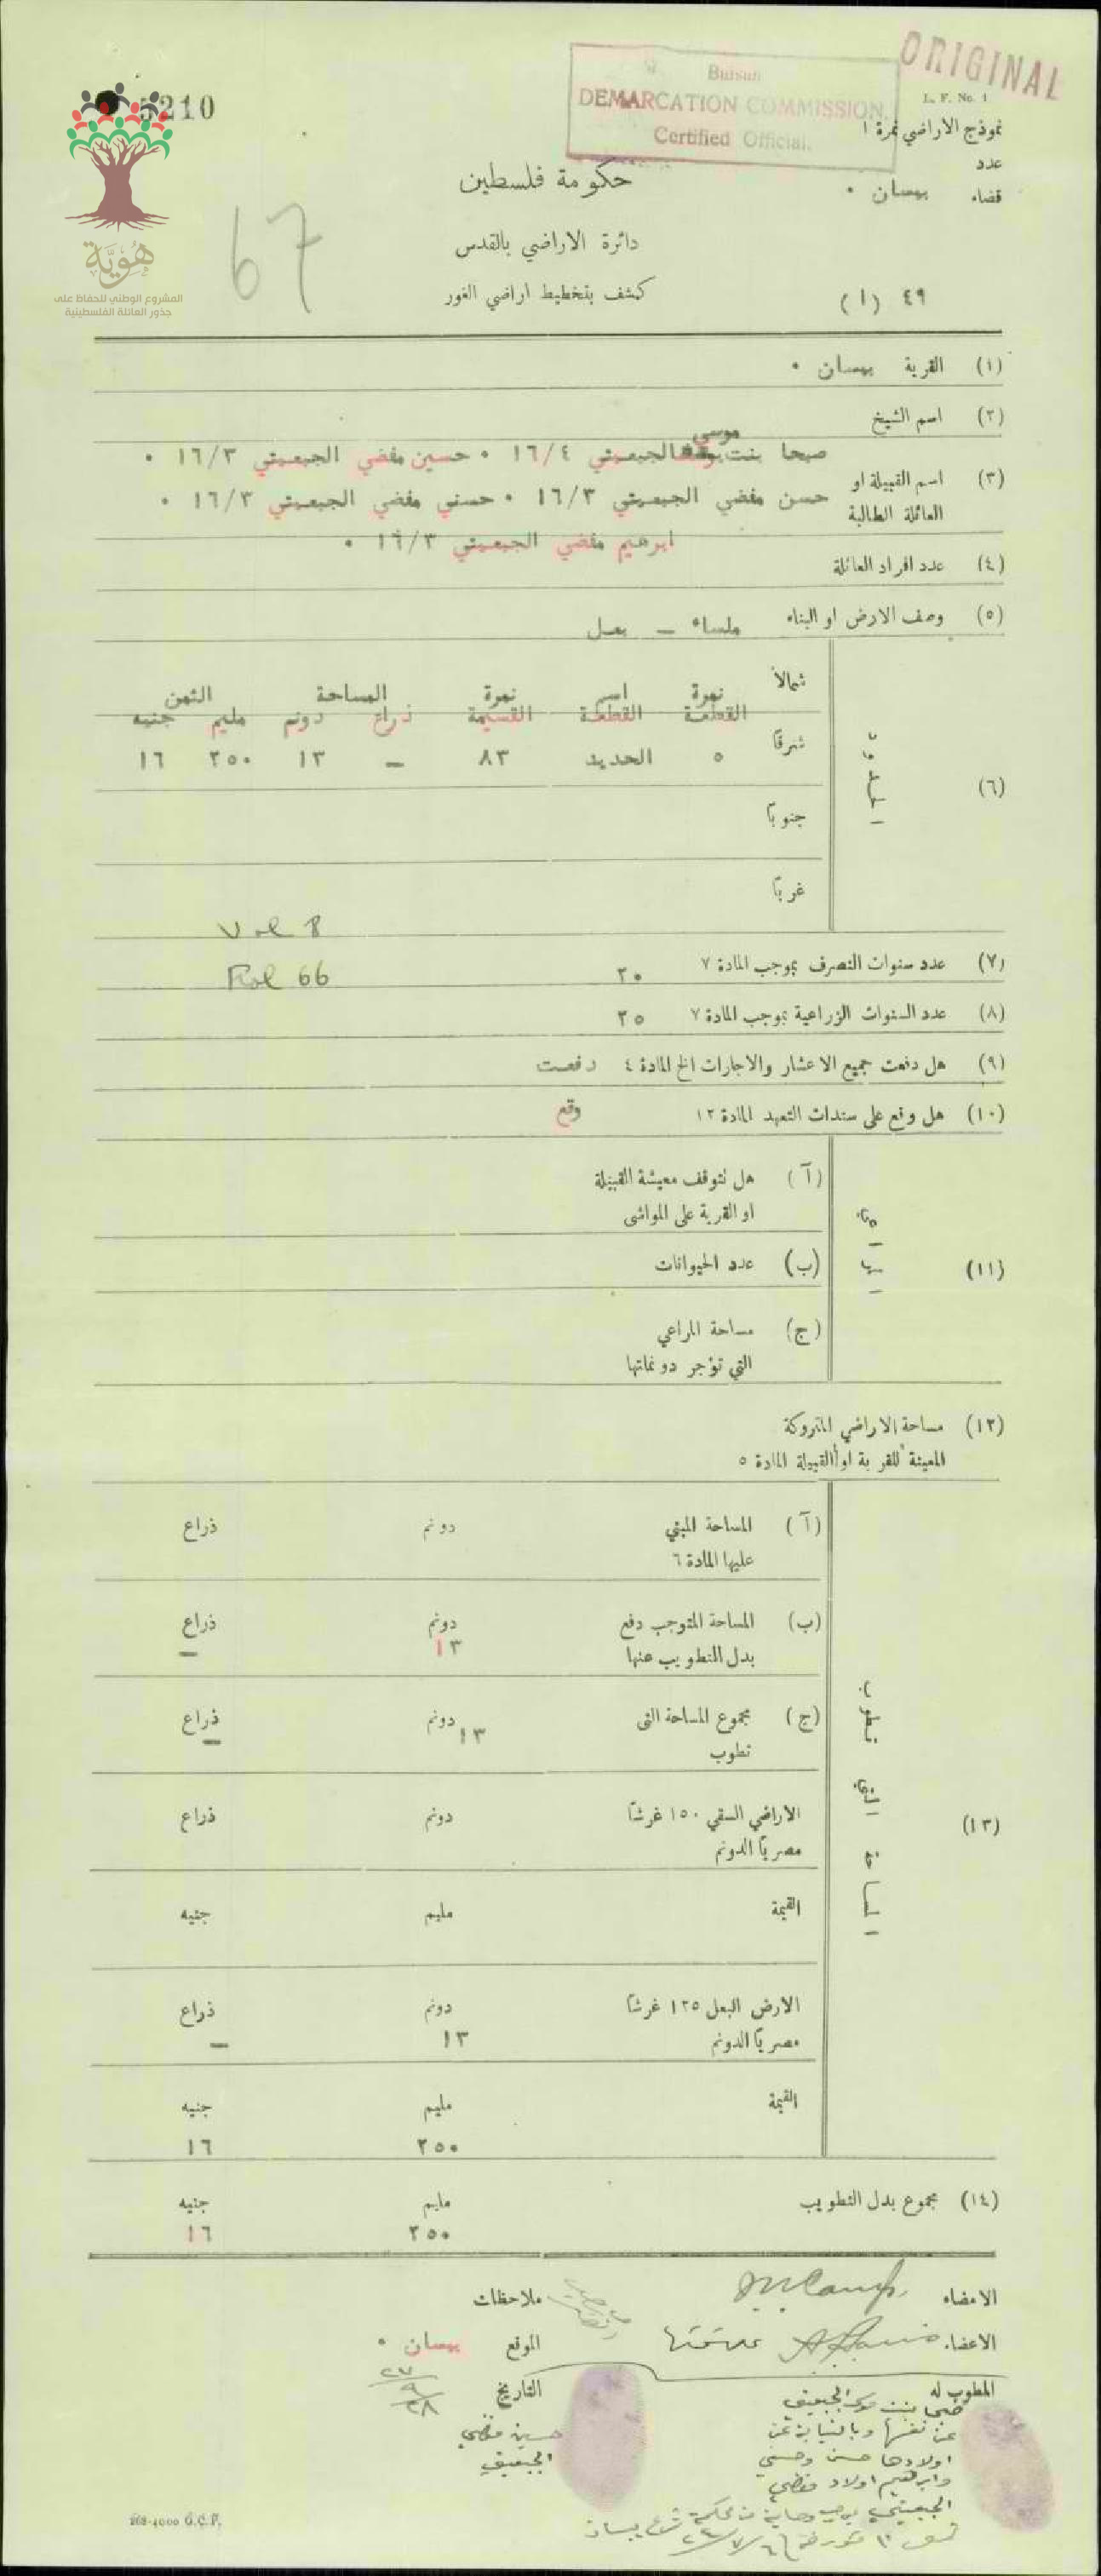 ORIGINAL
Buisun
DEMARCATION COMMISSION
Certified Official.
5210
L. F. No. 1
نموذج الاراضي نمرة ١
عدد
قضاء بيسان ٠
حكومة فلسطين
67
دائرة الاراضي بالقدس
كشف بتخطيط اراضي الغور
٤٩ (١)
هُوِيَّة
المشروع الوطني للحفاظ على
جذور العائلة الفلسطينية
(١) القرية بيسان ٠
(٢) اسم الشيخ
موسى
صبحا بنت الجبعيتي ١٦/٤ ٠ حسين مفضي الجبعيتي ١٦/٣ ٠
(٣) اسم القبيلة او
العائلة الطالبة
حسن مفضي الجبعيتي ١٦/٣ ٠ حسني مفضي الجبعيتي ١٦/٣ ٠
ابرهيم مفضي الجبعيتي ١٦/٣ ٠
(٤) عدد افراد العائلة
(٥) وصف الارض او البناء ملساء – بعل
(٦) الحدود
شمالاً
نمرة اسم نمرة المساحة الثمن
القطعة القطعة القسيمة ذراع دونم مليم جنيه
شرقاً
٥ الحديد ٨٣ – ١٣ ٢٥٠ ١٦
جنوباً
غرباً
Vol 8
Fol 66
(٧) عدد سنوات التصرف بموجب المادة ٧ ٢٠
(٨) عدد السنوات الزراعية بموجب المادة ٧ ٢٥
(٩) هل دفعت جميع الاعشار والاجارات الخ المادة ٤ دفعت
(١٠) هل وقع على سندات التعهد المادة ١٢ وقع
(١١)
(آ) هل تتوقف معيشة القبيلة
او القرية على المواشى
(ب) عدد الحيوانات
(ج) مساحة المراعي
التي تؤجر دونماتها
(١٢) مساحة الاراضي المتروكة
المعينة للقرية او القبيلة المادة ٥
(١٣)
(آ) المساحة المبني دونم ذراع
عليها المادة ٦
(ب) المساحة المتوجب دفع دونم ذراع
بدل التطويب عنها ١٣ –
(ج) مجموع المساحة التى دونم ١٣ ذراع –
تطوب
الاراضي السقي ١٥٠ غرشاً دونم ذراع
مصرياً الدونم
القيمة مليم جنيه
الارض البعل ١٢٥ غرشاً دونم ذراع
مصرياً الدونم ١٣ –
القيمة مليم جنيه
٢٥٠ ١٦
(١٤) مجموع بدل التطويب مليم جنيه
٢٥٠ ١٦
الامضاء ملاحظات
الاعضاء الموقع بيسان ٠
المطوب له التاريخ
بنت الجبعيتي
عن نفسها وبالنيابة عن
اولادها حسن وحسني
وابرهيم اولاد مفضي
الجبعيتي
حسين مفضي
الجبعيتي
268-4000 G.C.P.